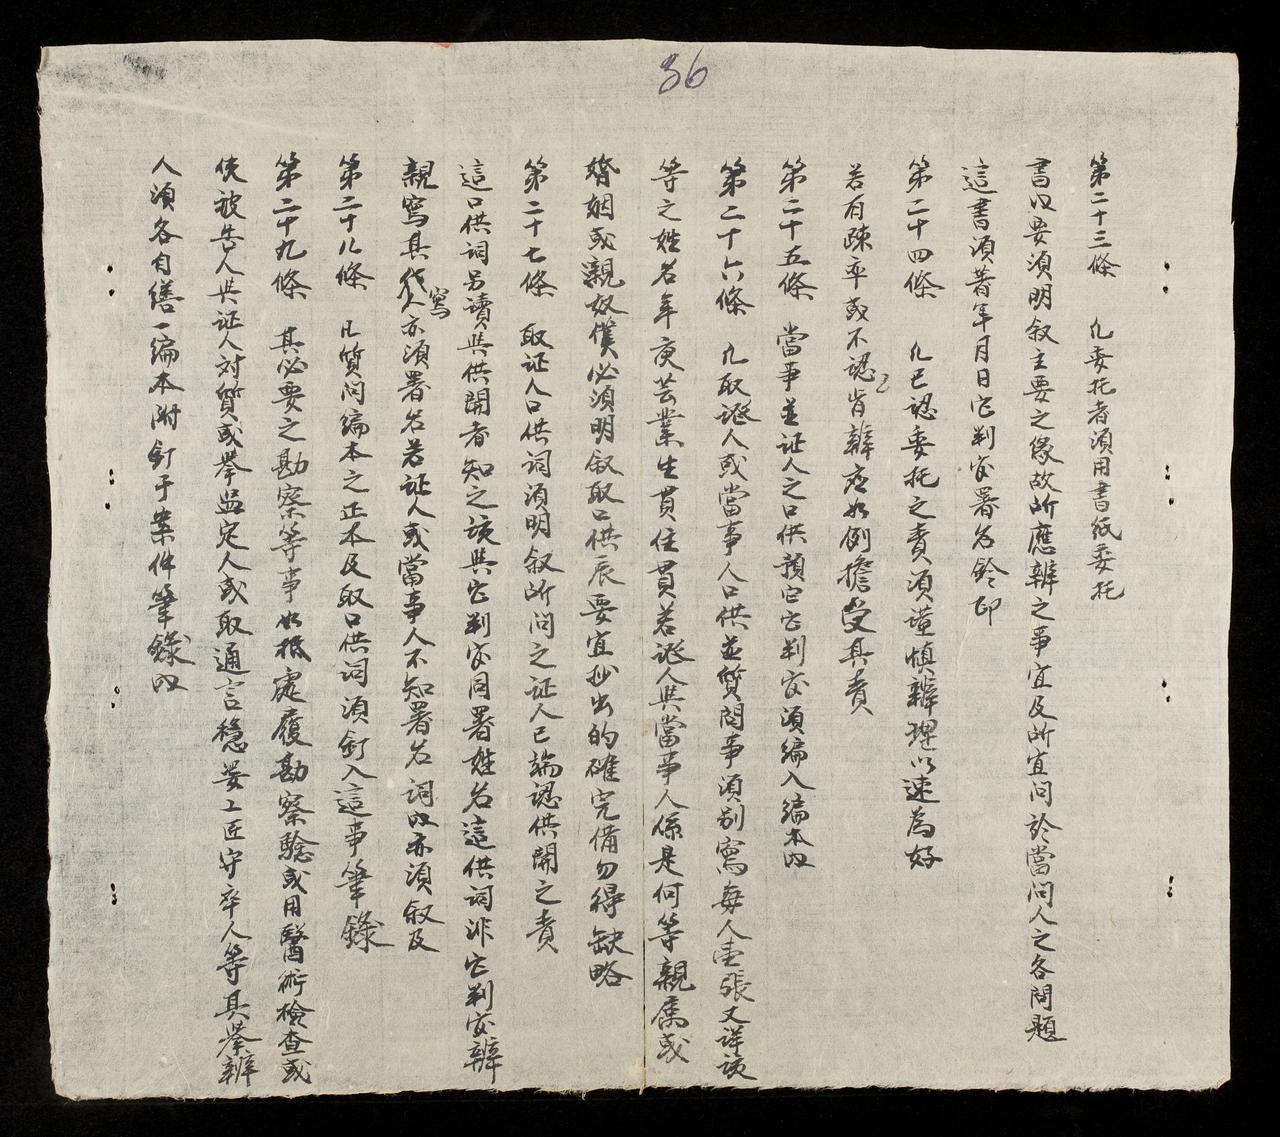 36
第二十三條　凡委托者須用書紙委托
書内要須明叙主要之緣故所應辨之事宜及所宜问於當问人之各問題
這書須著年月日它判官署名鈐印
第二十四條　凡已認委托之責須謹慎辨理以速為好
若有疎卒或不認肯辨應如例擔受其責
第二十五條　當事並证人之口供預它判官須編入編本内
第二十六條　凡取証人或當事人口供並質問事須别寫每人壹張又詳該
等之姓名年庚芸業生貫住貫若証人與當事人係是何等親属或
婚姻或親奴僕必須明叙取口供辰要宜抄出的確完備勿得缺略
第二十七條　取证人口供词須明叙所问之证人已論認供開之責
這口供词另讀與供開者知之該與它判官同署姓名這供词非它判官辨
親寫其代寫人亦須署名若证人或當事人不知署名词内亦須叙及
第二十八條　凡質问編本之正本及取口供词須釘入這事筆錄
第二十九條　其必要之勘察等事如抵處履勘察驗或用醫術檢查或
使被告人与证人对質或舉監定人或取通言穩婆工匠守卒人等其舉辨
人須各有繕一編本附釘于案件筆錄内